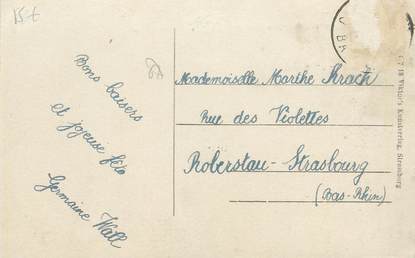 15 €
Bons baisers
et joyeuse fête
Germaine Wall
Mademoiselle Marthe Krach
Rue des Violettes
Roberstau - Strasbourg
(Bas-Rhin)
Viktor's Kunstverlag, Strassburg